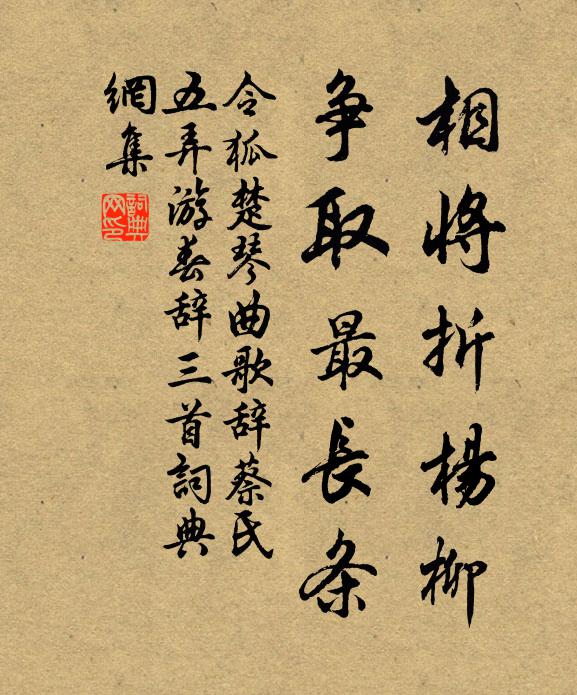 相将折楊柳
争取最長条
令狐楚琴曲歌辞蔡氏
五弄游春辞三首詞典
網集
詞典
网印